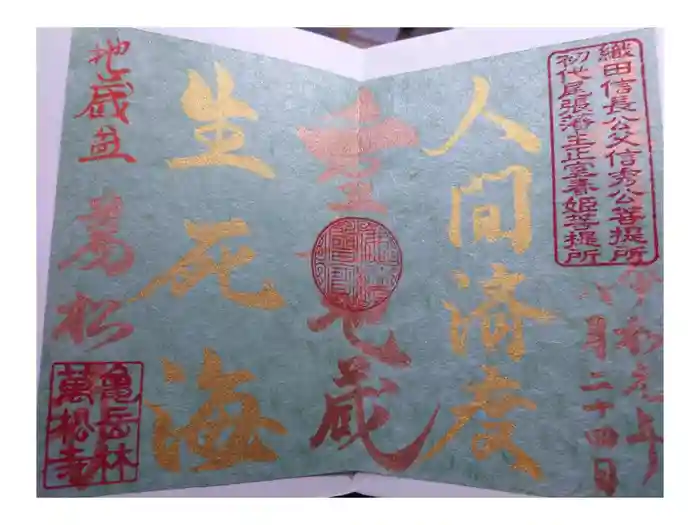 織田信長公父信秀公菩提所
初代尾張藩主正室春姫菩提所
令和元年
八月二十四日
人間済度
地蔵
生死海
地蔵盆
萬松
亀岳林
萬松寺